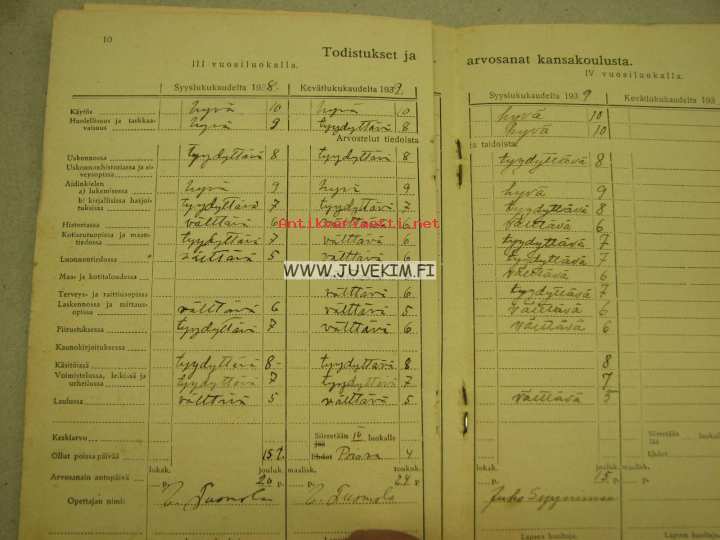 10
Todistukset ja arvosanat kansakoulusta.
III vuosiluokalla.
IV vuosiluokalla.
Syyslukukaudelta 1938. Kevätlukukaudelta 1939. Syyslukukaudelta 1939 Kevätlukukaudelta 193
Käytös hyvä 10 hyvä 10 hyvä 10
Huolellisuus ja tarkkaavaisuus hyvä 9 tyydyttävä 8 hyvä 10
Arvostelut tiedoista ja taidoista
Uskonnossa tyydyttävä 8 tyydyttävä 8 tyydyttävä 8
Uskonnonhistoriassa ja siveysopissa
Äidinkielen
a) lukemisessa hyvä 9 hyvä 9 hyvä 9
b) kirjallisissa harjoituksissa tyydyttävä 7 tyydyttävä 7 tyydyttävä 8
Historiassa välttävä 6 välttävä 6 välttävä 6
Kotiseutuopissa ja maantiedossa tyydyttävä 7 välttävä 6 tyydyttävä 7
Luonnontiedossa välttävä 5 välttävä 6 tyydyttävä 7
Maa- ja kotitaloudessa välttävä 6
Terveys- ja raittiusopissa välttävä 6 tyydyttävä 7
Laskennossa ja mittausopissa välttävä 6 välttävä 5 välttävä 6
Piirustuksessa tyydyttävä 7 välttävä 6 välttävä 6
Kaunokirjoituksessa
Käsitöissä tyydyttävä 8- tyydyttävä 8 8
Voimistelussa, leikissä ja urheilussa tyydyttävä 7 tyydyttävä 7 7
Laulussa välttävä 5 välttävä 5 välttävä 5
Keskiarvo Siirretään IV luokalle Siirretään luokalle
Jää Jää
Ollut poissa päivää Ehdot Poissa 4 Ehdot
lokak. jouluk. maalisk. toukok. lokak. jouluk. maalisk.
Arvosanain antopäivä p. 20 p. p. p. p. 15 p.
Opettajan nimi:
Antiikkiaitti.net
WWW.JUVEKIM.FI